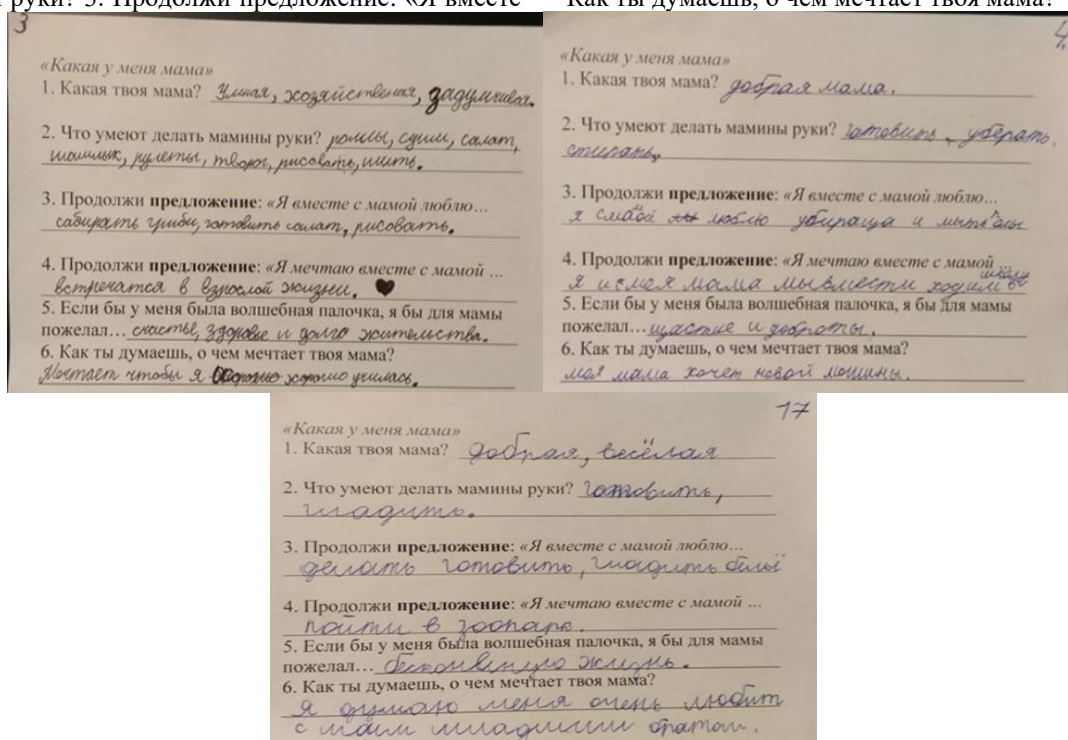 руки? 3. Продолжи предложение: «Я вместе
Как ты думаешь, о чем мечтает твоя мама?
3
«Какая у меня мама»
1. Какая твоя мама? Умная, хозяйственая, задумчивая.
2. Что умеют делать мамины руки? роллы, суши, салат,
шашлык, рулеты, творог, рисовать, шить.
3. Продолжи предложение: «Я вместе с мамой люблю…
сабирать грибы, готовить салат, рисовать.
4. Продолжи предложение: «Я мечтаю вместе с мамой …
встречатся в взрослой жизни. ♥
5. Если бы у меня была волшебная палочка, я бы для мамы
пожелал… счастье, здоровье и долго жительства.
6. Как ты думаешь, о чем мечтает твоя мама?
Мечтает чтобы я хорошо училась.
4.
«Какая у меня мама»
1. Какая твоя мама? добрая мама.
2. Что умеют делать мамины руки? готовить, уберать,
стирать,
3. Продолжи предложение: «Я вместе с мамой люблю…
я смамой люблю убираца и мыть
4. Продолжи предложение: «Я мечтаю вместе с мамой …
я и моя мама мывмести ходим
5. Если бы у меня была волшебная палочка, я бы для мамы
пожелал… щастие и доброты.
6. Как ты думаешь, о чем мечтает твоя мама?
моя мама хочет новой машины.
17
«Какая у меня мама»
1. Какая твоя мама? добрая, весёлая
2. Что умеют делать мамины руки? Готовить,
гладить.
3. Продолжи предложение: «Я вместе с мамой люблю…
делать готовить, гладить бельё
4. Продолжи предложение: «Я мечтаю вместе с мамой …
пойти в зоопарк.
5. Если бы у меня была волшебная палочка, я бы для мамы
пожелал… жизнь.
6. Как ты думаешь, о чем мечтает твоя мама?
я думаю меня очень любит
с моим младшим братом.